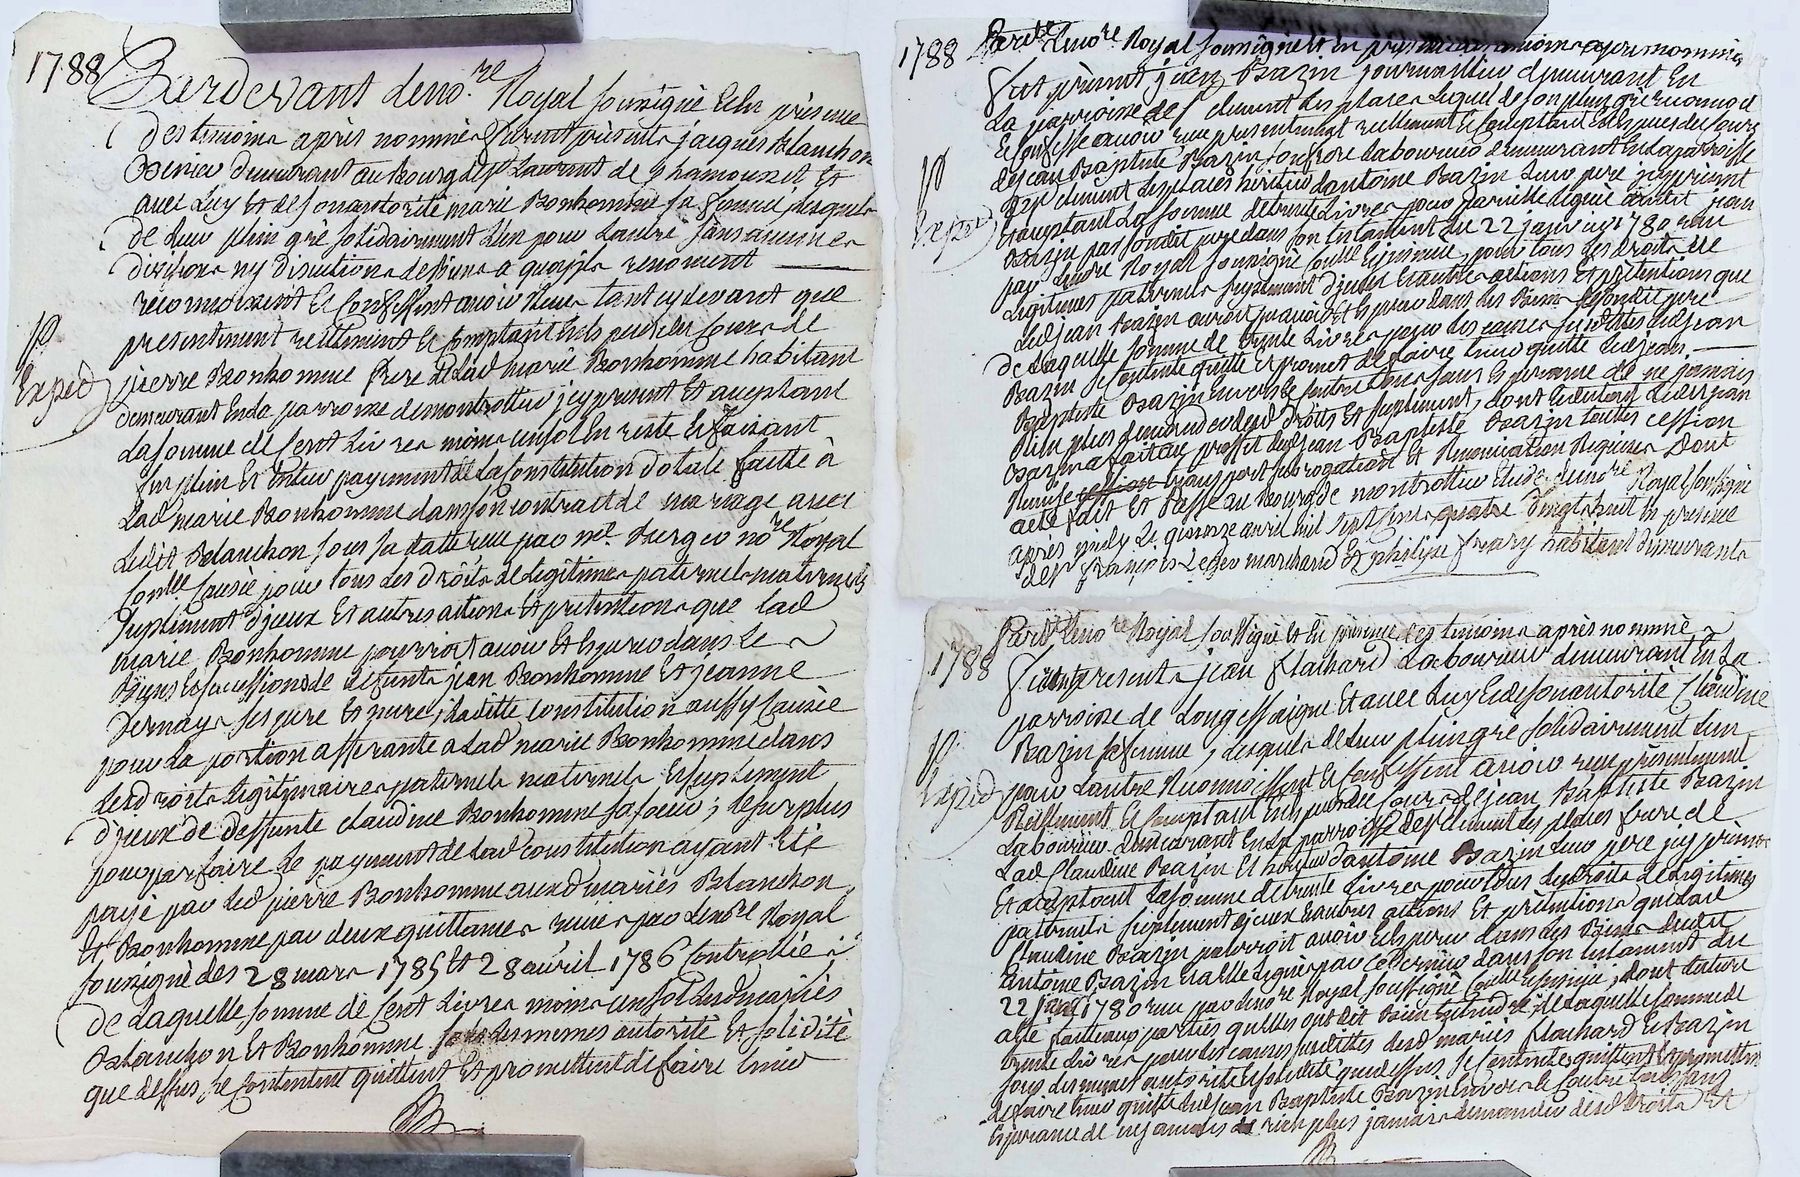 1788
Pardevant le no.re Royal soussigné Et En présence
des temoins après nommés furent présents jacques Blanchon
demeurant au Bourg de St Laurent de Chamousset Et
avec Luy Et de son autorité marie Bonhomme sa femme lesquels
de Leur plein gré solidairement L'un pour L'autre sans aucunes
divisions ny discutions de Biens a quoy ils renoncent
reconnoissent Et Confessent avoir Reçu tant cydevant que
présentement réellement Et Comptant En Espèces du Cours de
pierre Bonhomme frere de Lad marie Bonhomme habitant
demeurant En la parroisse de montrottier jcy présent Et acceptant
La somme de Cent Livres moins un sol En reste Et faisant
fin plein Et Entier payement de La Constitution dotale faitte à
Lad marie Bonhomme dans son contract de mariage avec
Ledit Blanchon sous sa datte reçu par me. no.re Royal
Causée pour tous Les droits de Legitimes paternels maternels
supplement d'jceux Et autres actions Et prétentions que lad
marie Bonhomme pourroit avoir Et Espérer dans Les
Biens Et successions de defunts jean Bonhomme Et jeanne
dernays ses pere Et mere, Laditte Constitution aussy Causée
pour La portion afferante a Lad marie Bonhomme dans
Lesd droits Legitimaires paternels maternels Et suplement
d'jceux de deffunte claudine Bonhomme sa soeur; Le surplus
pour parfaire Le payement de Lad constitution ayant Eté
payé par Led pierre Bonhomme auxd mariés Blanchon
Et Bonhomme par deux quittances reçues par Le no.re Royal
soussigné des 28 mars 1785 Et 28 avril 1786 Controllées
de Laquelle somme de Cent Livres moins un sol Lesd mariés
Blanchon Et Bonhomme sous Les memes autorité Et solidité
que dessus, se Contentent quittent Et promettent de faire tenir
Exped
1788
Pardt Le no.re Royal soussigné Et En présence des temoins après nommés
fut présent jean Bazin journallier demeurant En
La parroisse de St Clement Les places Lequel de son plein gré reconnoit
Et Confesse avoir reçu présentement réellement Et Comptant En Espèces du Cours
de jean Baptiste Bazin son frere Laboureur demeurant En La parroisse
de St Clement Les places héritier d'antoine Bazin Leur pere jcy présent
Et acceptant La somme de trente Livres pour pareille Leguée audit jean
Bazin par sondit pere dans son testament du 22 janvier 1780 reçu
par Le no.re Royal soussigné Coulle Et jnsinué, pour tous Les droits de
Legitimes paternels supplement d'jceux Et autres actions Et prétentions que
Led jean Bazin auroit pu avoir Et Espérer dans Les Biens de sondit pere
de Laquelle somme de trente Livres pour Les causes susdittes Led jean
Bazin se contente quitte Et promet de faire tenir quitte Led jean
Baptiste Bazin Envers Et Contre tous sans Espérance de ne jamais
Rien plus demander desd droits Et supplement, dont Led jean
Bazin a fait au proffit dud jean Baptiste Bazin toutes cession
Remise cession transport subrogation Et Renonciation Requises Dont
acte fait Et Passé au Bourg de montrottier Etude du no.re Royal soussigné
après midy Le quinze avril mil sept cents quatre vingt huit En présence
de Sr françois Leger marchand Et philipe frary habitant demeurants
Exped
1788
Pardt Le no.re Royal soussigné Et En présence des temoins après nommés
furent présents jean flachard Laboureur demeurant En La
parroisse de Longessaigne Et avec Luy Et de son autorité Claudine
Bazin sa femme, Lesquels de Leur plein gré solidairement L'un
pour L'autre Reconnoissent Et Confessent avoir reçu présentement
Réellement Et Comptant En Espèces du Cours de jean Baptiste Bazin
Laboureur demeurant En La parroisse de St Clement Les places frere de
Lad Claudine Bazin Et héritier d'antoine Bazin Leur pere jcy présent
Et acceptant La somme de trente Livres pour tous Les droits de Legitimes
paternels supplement d'jceux Et autres actions Et prétentions que Lad
Claudine Bazin pourroit avoir Et Espérer dans Les Biens dudit
antoine Bazin Et a Elle Leguée par ce dernier dans son testament du
22 janv 1780 reçu par Le no.re Royal soussigné Coulle Et jnsinué, dont Lecture
a Eté faitte aux parties qu'elles ont dit Bien Entendre, de Laquelle somme de
trente Livres pour Les causes susdittes Lesd mariés flachard Et Bazin
sous Les memes autorité Et solidité que dessus se Contentent quittent Et promettent
de faire tenir quitte Led jean Baptiste Bazin Envers Et Contre tous sans
Espérance de ne jamais de rien plus jamais demander desd droits Et
Exped